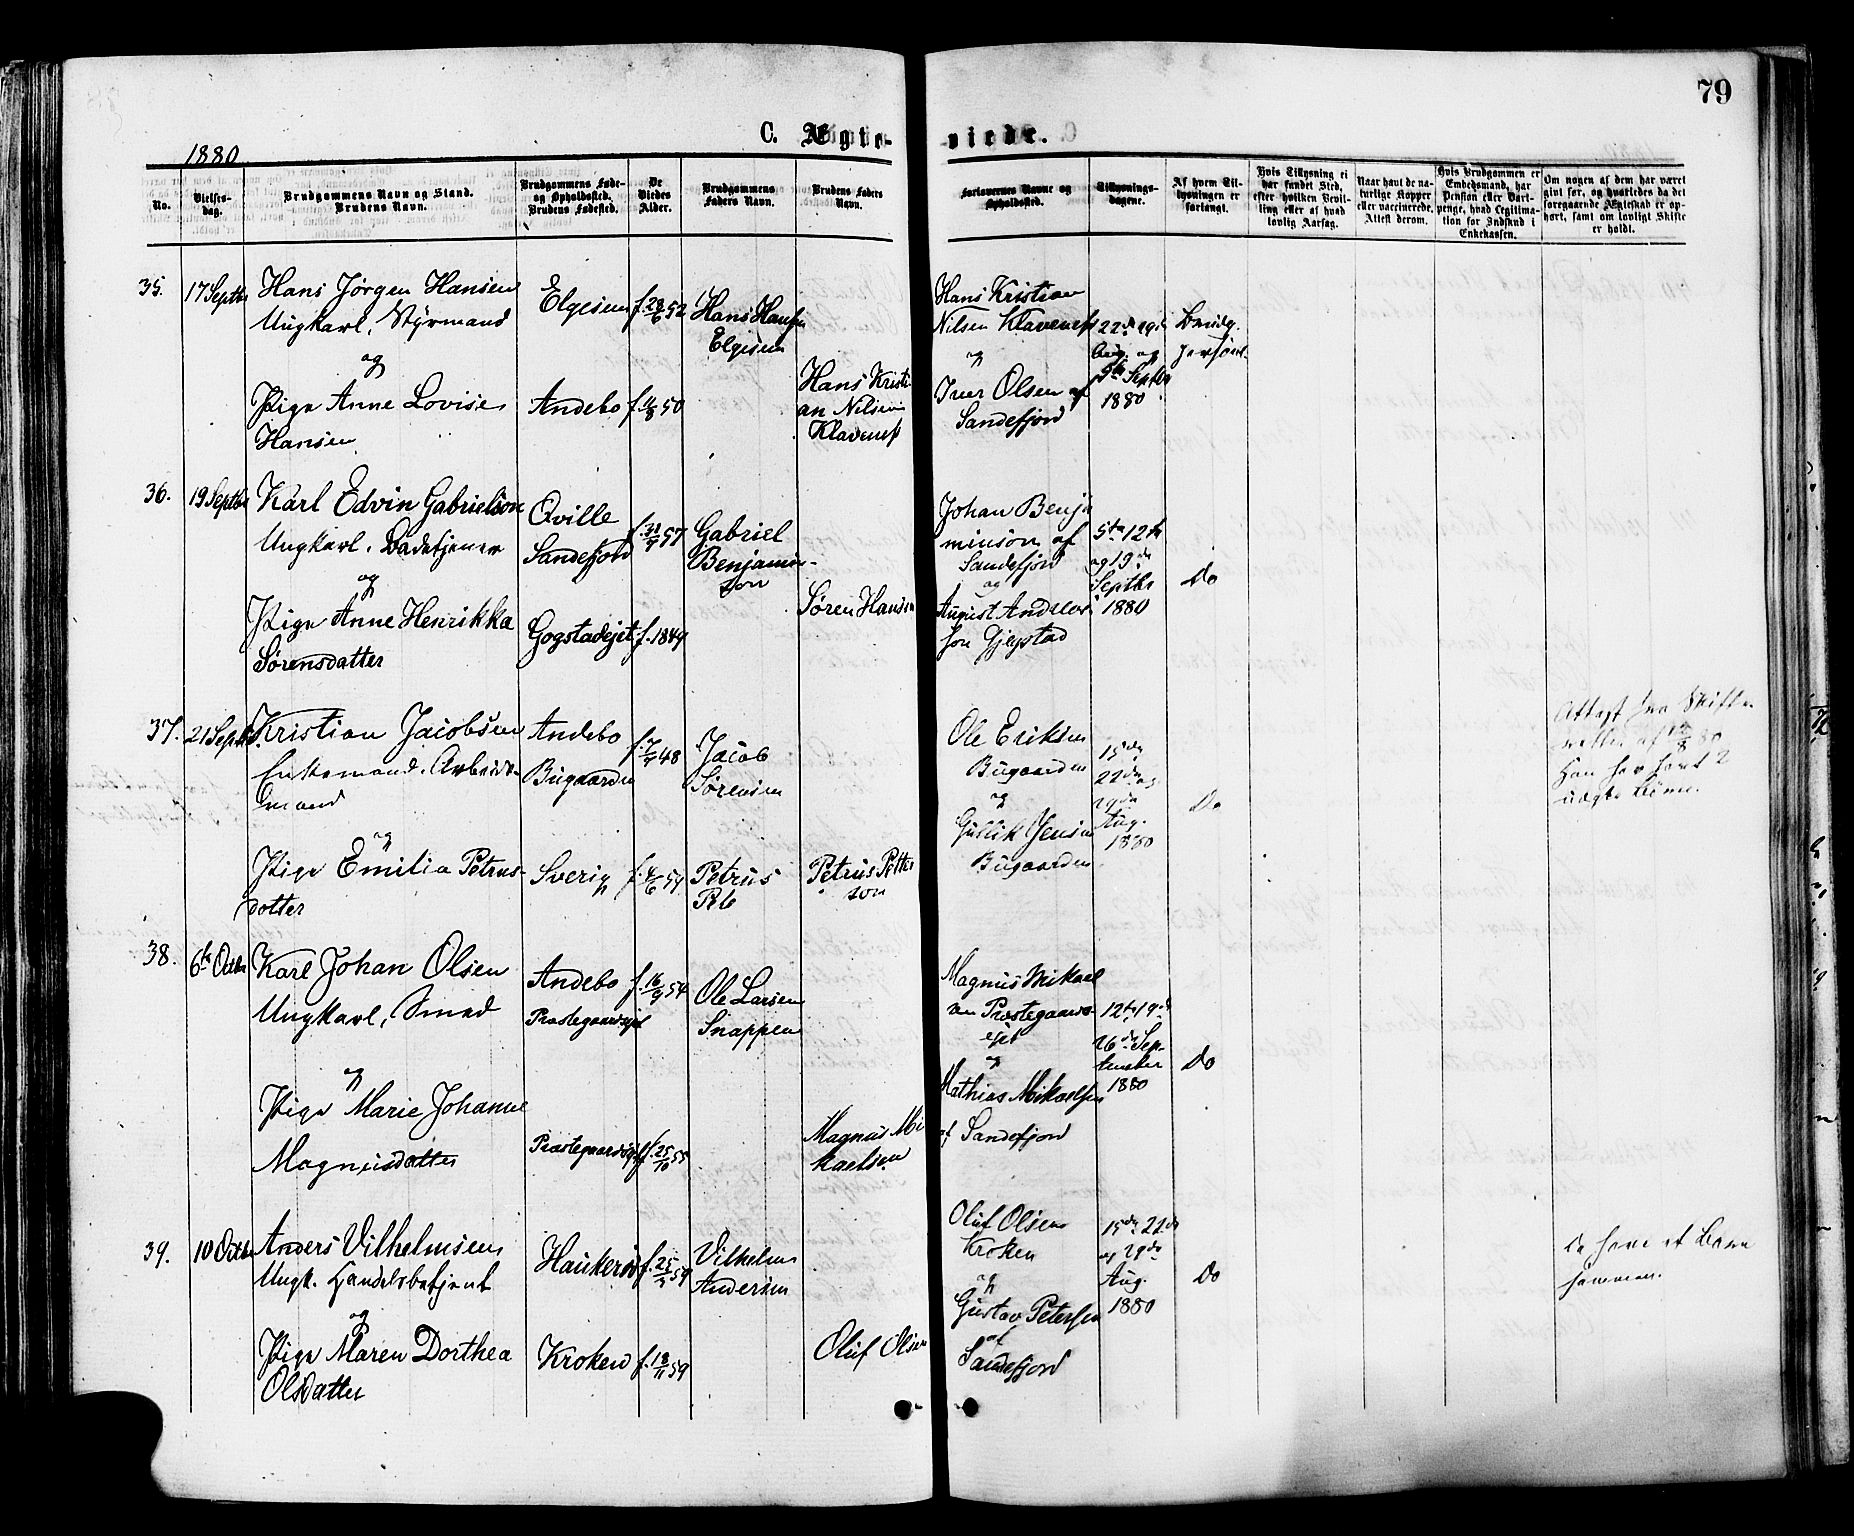 79
C. Ægte-viede.
1880
No.
Vielses-dag.
Brudgommens Navn og Stand. Brudens Navn.
Brudgommens Føde- og Opholdssted. Brudens Fødested.
De Viedes Alder.
Brudgommens Faders Navn.
Brudens Faders Navn.
Forlovernes Navne og Opholdssted.
Tillysnings-dagene.
Af hvem Til-lysningen er forlangt.
Hvis Tillysning ei har fundet Sted, efter hvilken Bevil-ling eller af hvad lovlig Aarsag.
Naar havt de na-turlige Kopper eller vaccinerede. Attest derom.
Hvis Brudgommen er Embedsmand, har Pension eller Vart-penge, hvad Legitima-tion for Indskud i Enkekassen.
Om nogen af dem har været gift før, og hvorledes da det foregaaende Ægteskab er op-hørt, samt om lovligt Skifte er holdt.
35.
17 Septbr
Hans Jørgen Hansen
Ungkarl, Styrmand
og
Pige Anne Lovise
Hansen
Elgesem
Andebo
f. 28/6 52
f. 11/8 50
Hans Hansen
Elgesem
Hans Kristi
an Nilsen
Klavenes
Hans Kristian
Nilsen Klavenes
og
Iver Olsen af
Sandefjord
22de 29de
Aug. og
5te Septbr
1880
Brudg.
36.
19 Septbr
Karl Edvin Gabrielson
Ungkarl. Badetjener
og
Pige Anne Henrikka
Sørensdatter
Qville
Sandefjord
Gogstadejet
f. 1849
Gabriel
Benjamin-
son
Søren Hansen
Johan Benja
minson af
Sandefjord
og
August Andrea
son Gjegstad
5te 12te
og 19de
Septbr
1880
Do
37.
21 Septbr
Kristian Jacobsen
Enkemand. Arbeids-
mand
og
Pige Emilia Petrus-
dotter
Andebo
Bugaarden
Sverig
f. 7/7 48
Jacob
Sørensen
Petrus
Petrus Petter
son
Ole Eriksen
Bugaarden
og
Gullik Jensen
Bugaarden
15de
22de og
29de
Aug.
1880
Do
Attest fra Skifte
retten af
Han har havt 2
uægte Børn.
38.
6te Octbr
Karl Johan Olsen
Ungkarl, Smed
og
Pige Marie Johanne
Magnusdatter
Andebo
Præstegaardsejet
Præstegaardsejet
f. 16/9 54
f. 25/10 55
Ole Larsen
Snappen
Magnus Mi
kaelsen
Magnus Mikael
sen Præstegaards-
ejet
og
Mathias Mikaelsen
af Sandefjord
12te 19de
26de Sep-
tember
1880
Do
39.
10 Octbr
Anders Vilhelmsen
Ungk. Handelsbetjent
og
Pige Maren Dorthea
Olsdatter
Haukerød
Kroken
f. 18/11 59
Vilhelm
Andersen
Oluf Olsen
Oluf Olsen
Kroken
og
Gustav Petersen
af
Sandefjord
15de 22de
og 29de
Aug.
1880
Do
De have et Barn
sammen.